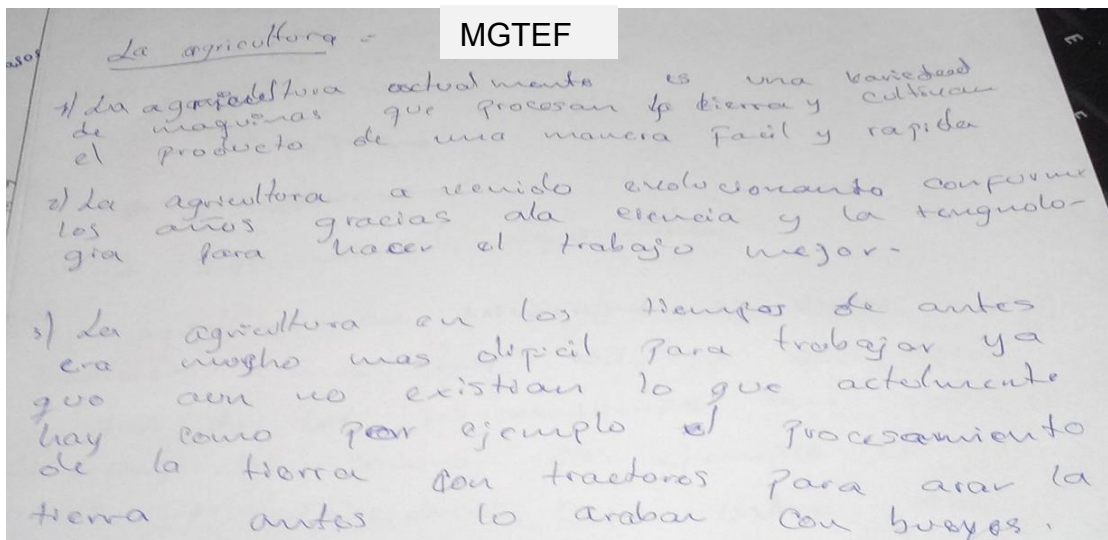 MGTEF
asos
La agricultura =
1) La agricultura actualmente es una variedad
de maquinas que procesan la tierra y cultivan
el producto de una manera facil y rapida
2) La agricultura a venido evolucionanto conforme
los años gracias ala ciencia y la tengnolo-
gia para hacer el trabajo mejor-
3) La agricultura en los tiempos de antes
era mugho mas dificil para trabajar ya
que aun no existian lo que actulmente
hay como por ejemplo el procesamiento
de la tierra con tractores para arar la
tierra antes lo araban con bueyes.